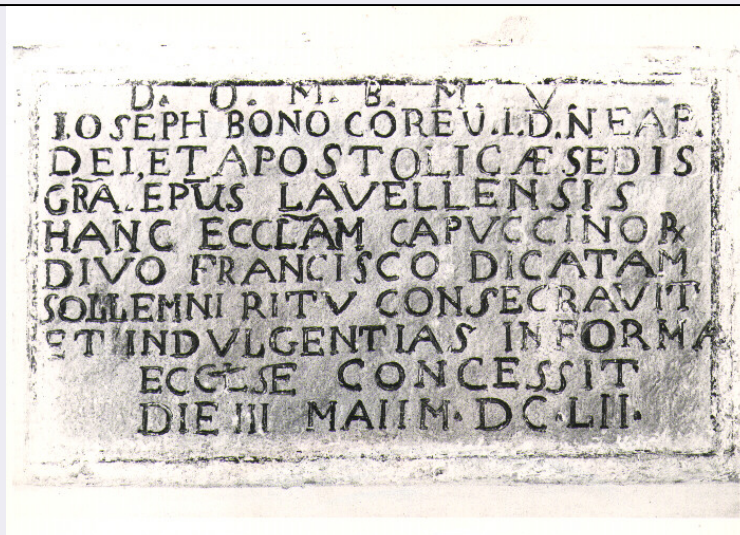 D. O. M. B. M. V.
IOSEPH BONO COREU.I.D.NEAP.
DEI, ET APOSTOLICÆ SEDIS
GRA. EPUS LAVELLENSIS
HANC ECCLAM CAPVCCINOR
DIVO FRANCISCO DICATAM
SOLLEMNI RITV CONSECRAVIT
ET INDVLGENTIAS IN FORMA
ECCLSE CONCESSIT
DIE III MAII M·DC·LII·